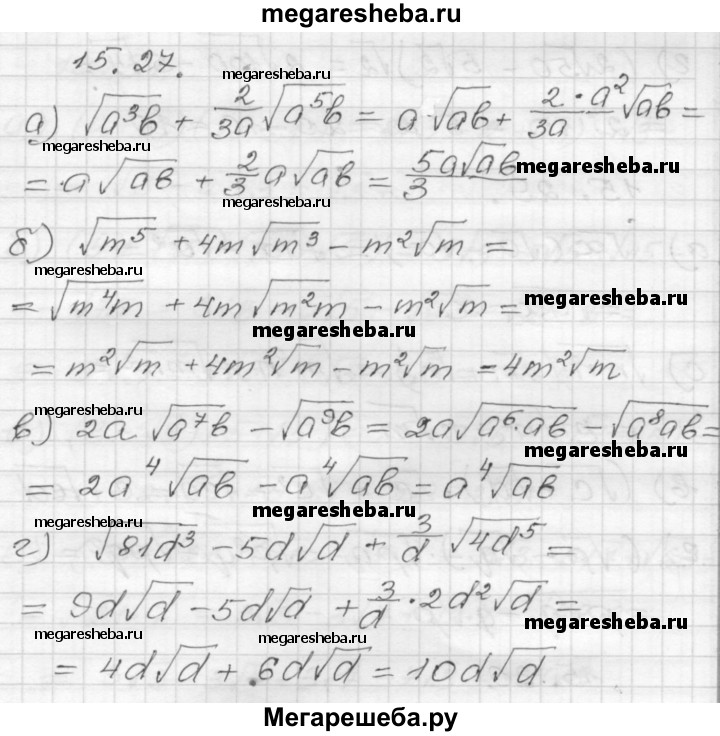 megaresheba.ru
15.27.
megaresheba.ru
а) √(a³b) + 2/(3a) √(a⁵b) = a·√(ab) + (2·a²)/(3a) √(ab) =
megaresheba.ru
= a√(ab) + 2/3 a√(ab) = (5a√(ab))/3
megaresheba.ru
megaresheba.ru
б) √(m⁵) + 4m√(m³) − m²√m =
megaresheba.ru
= √(m⁴m) + 4m√(m²m) − m²√m =
megaresheba.ru
megaresheba.ru
= m²√m + 4m²√m − m²√m = 4m²√m
megaresheba.ru
в) 2a √(a⁷b) − √(a⁹b) = 2a√(a⁶·ab) − √(a⁸ab) =
megaresheba.ru
= 2a⁴√(ab) − a⁴√(ab) = a⁴√(ab)
megaresheba.ru
megaresheba.ru
г) √(81d³) − 5d√d + 3/d √(4d⁵) =
= 9d√d − 5d√d + 3/d · 2d²√d =
megaresheba.ru
megaresheba.ru
megaresheba.ru
= 4d√d + 6d√d = 10d√d
Мегарешеба.ру